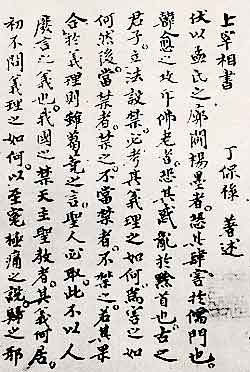 上宰相書
丁保祿 著述
伏以孟氏之廓闢楊墨者恐其肆害於儒門也
韓愈之攻斥佛老者悲其惑亂於黔首也古之
君子立法設禁必考其義理之如何爲害之如
何然後當禁者禁之不當禁者不禁之若其果
合於義理則雖蒭蕘之言聖人必取此不以人
廢言之義也我國之禁天主聖教者其義何居
初不問義理之如何以至寃極痛之說歸之邪